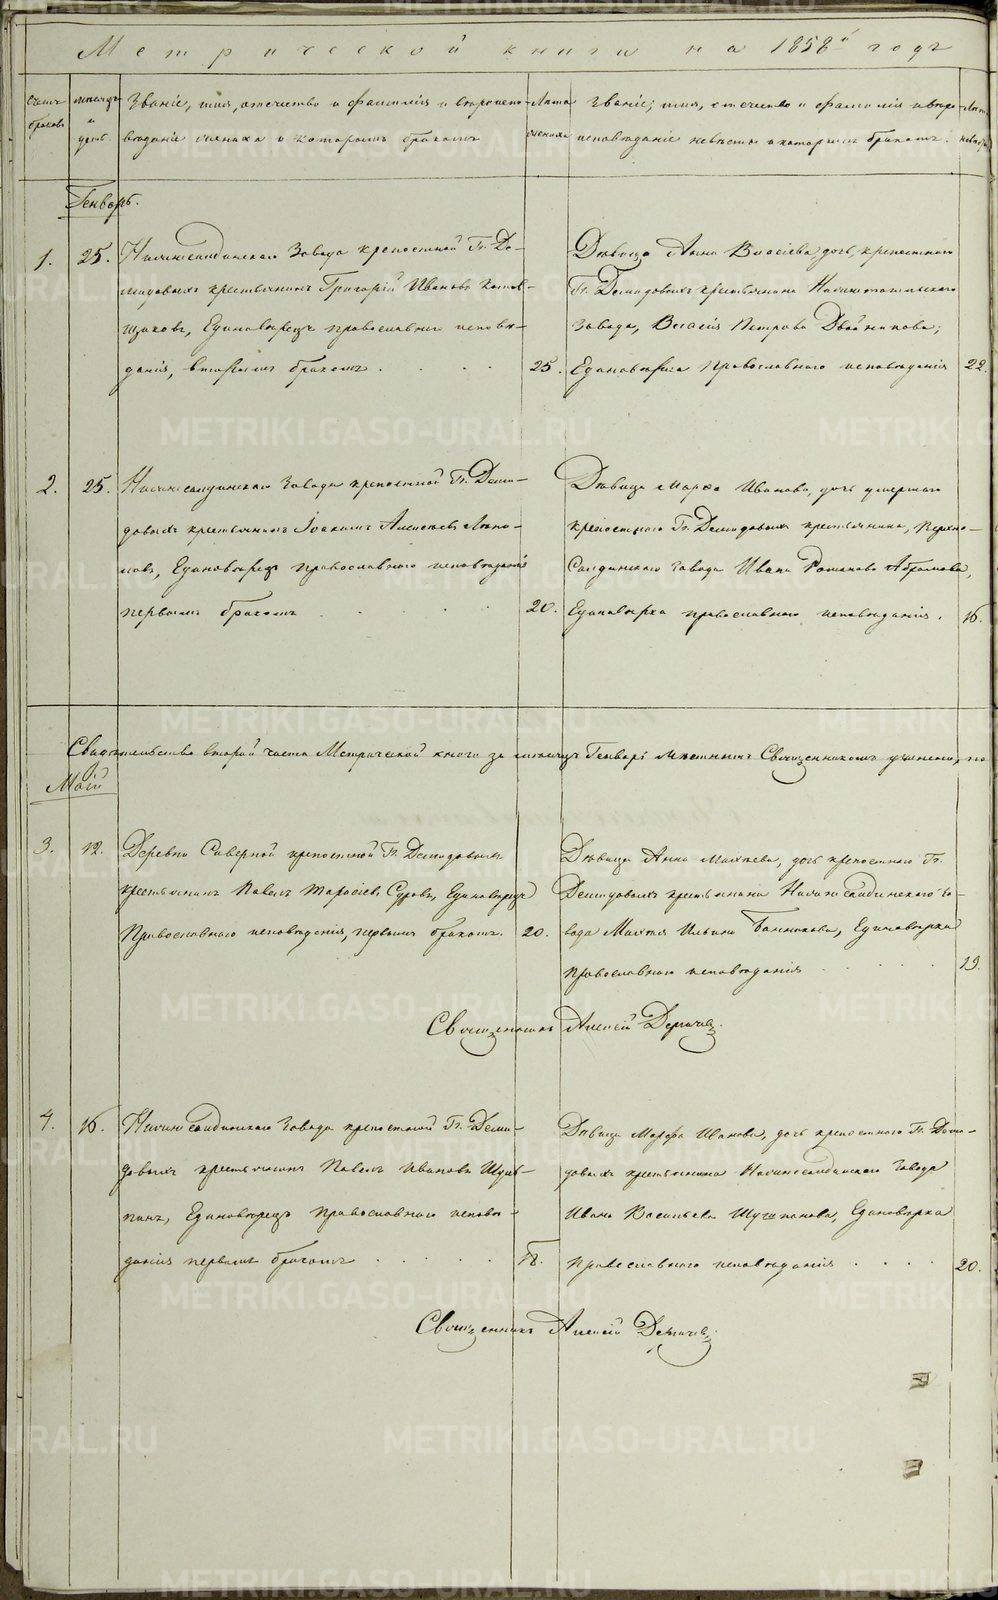 Метрической книги на 1858й годъ
Счетъ браковъ
Месяцъ и день.
Званіе, имя, отечество и фамилія и вѣроиспо-
вѣданіе жениха и которымъ бракомъ
Лѣта жениха
Званіе, имя, отечество и фамилія и вѣро-
исповѣданіе невѣсты и которымъ бракомъ.
Лѣта невѣсты
Генварь.
1.
25.
Нижнесалдинскаго Завода крепостной Гг. Де-
мидовыхъ крестьянинъ Григорій Ивановъ
Единовѣрецъ православнаго исповѣ-
данія, вторымъ бракомъ
25.
Дѣвица Анна Власіева, дочь крепостнаго
Гг. Демидовыхъ крестьянина Нижнетагильскаго
завода, Власія Петрова Двойникова;
Единовѣрка Православнаго исповѣданія
22.
2.
25.
Нижнесалдинскаго Завода крепостной Гг. Деми-
довыхъ крестьянинъ Іоакимъ Алексѣевъ
Единовѣрецъ православнаго исповѣданія
первымъ бракомъ
20.
Дѣвица Марѳа Иванова, дочь умершаго
крепостнаго Гг. Демидовыхъ крестьянина, Верхне-
Салдинскаго завода Ивана Романова Абрамова,
Единовѣрка православнаго исповѣданія.
16.
Свидѣтельство второй части Метрической книги за месяцъ Генварь мѣстнымъ Священникомъ учинено,
Май
3.
12.
Деревни Северной крепостной Гг. Демидовыхъ
крестьянинъ Павелъ Тарасіевъ Суровъ, Единовѣрецъ
Православнаго исповѣданія, первымъ бракомъ.
20.
Дѣвица Анна Матвѣева, дочь крепостнаго Гг.
Демидовыхъ крестьянина Нижнесалдинскаго за-
вода Матвѣя Ильина Банникова, Единовѣрка
православнаго исповѣданія
19.
Священникъ Алексій
4.
16.
Нижнесалдинскаго Завода крепостной Гг. Деми-
довыхъ крестьянинъ Павелъ Ивановъ
Единовѣрецъ Православнаго исповѣ-
данія первымъ бракомъ
18.
Дѣвица Марѳа Иванова, дочь крепостнаго Гг. Деми-
довыхъ крестьянина Нижнесалдинскаго Завода
Ивана Васильева Единовѣрка
православнаго исповѣданія
20.
Священникъ Алексій
METRIKI.GASO-URAL.RU